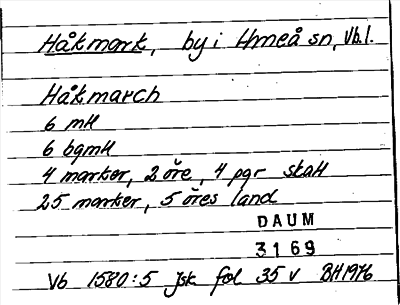 Håkmark, by i Umeå sn, Vb.l.
Håkmarch
6 mH
6 bgmH
4 marker, 2 öre, 4 pgr skatt
25 marker, 5 öres land
DAUM
3169
Vb 1580:5 Jsk fol 35 v BH 1976